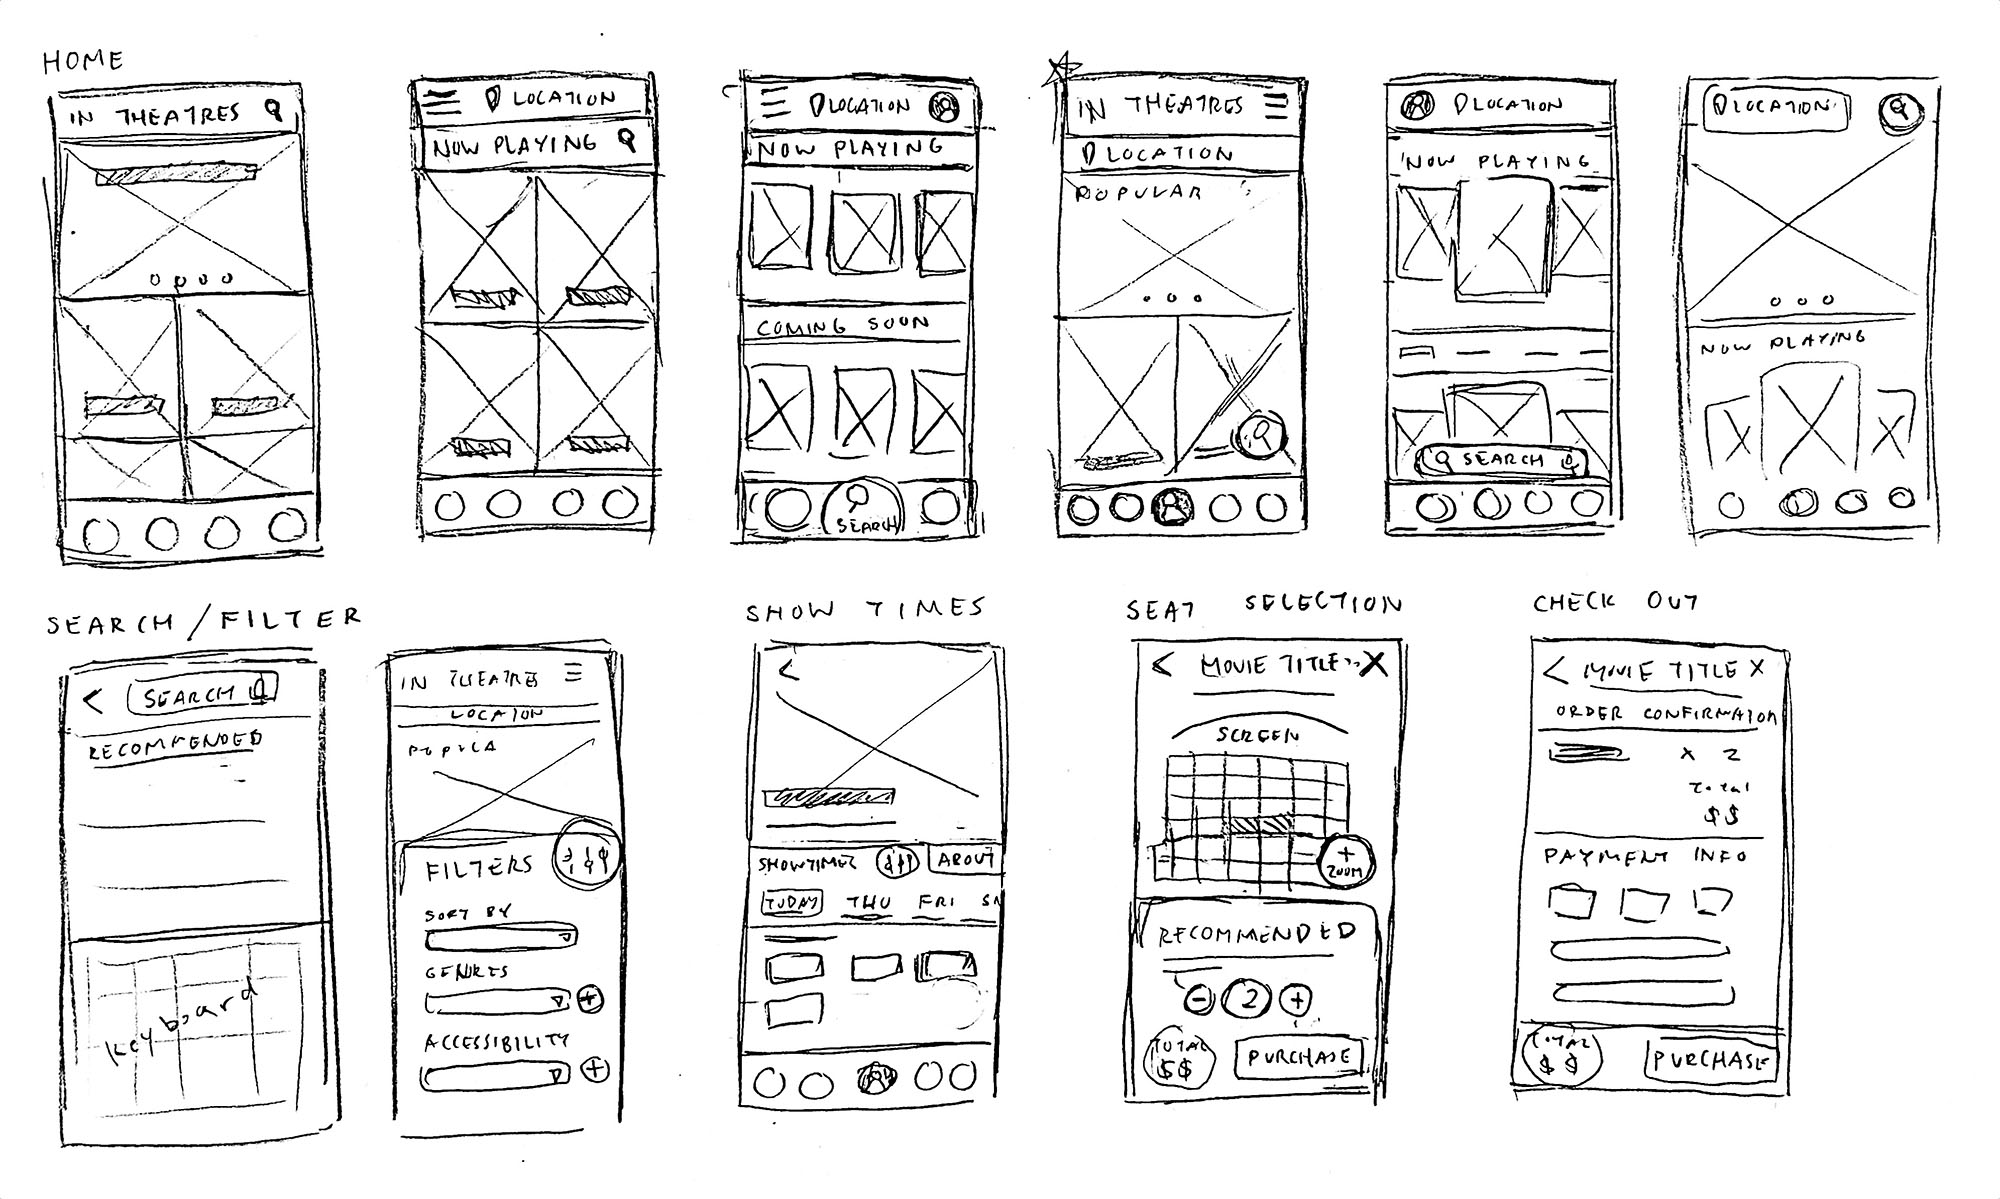 HOME
IN THEATRES
LOCATION
NOW PLAYING
LOCATION
NOW PLAYING
COMING SOON
SEARCH
IN THEATRES
LOCATION
POPULAR
LOCATION
NOW PLAYING
SEARCH
LOCATION
NOW PLAYING
SEARCH/FILTER
SEARCH
RECOMMENDED
Keyboard
IN THEATRES
LOCATION
POPULA
FILTERS
SORT BY
GENRES
ACCESSIBILITY
SHOW TIMES
SHOWTIMES
ABOUT
TODAY THU FRI SA
SEAT SELECTION
< MOVIE TITLE X
SCREEN
+
ZOOM
RECOMMENDED
- 2 +
TOTAL
$$
PURCHASE
CHECK OUT
< MOVIE TITLE X
ORDER CONFIRMATION
X 2
Total
$$
PAYMENT INFO
TOTAL
$$
PURCHASE